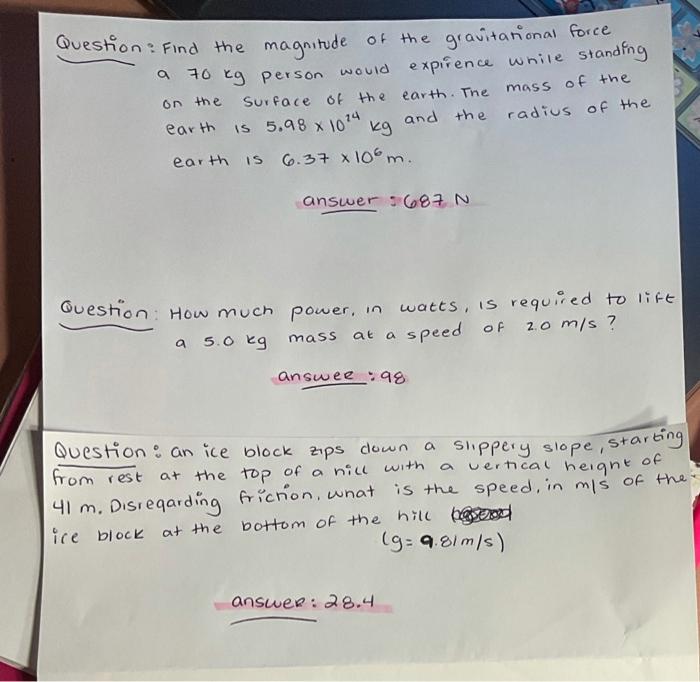 Question: Find the magnitude of the gravitational force
a 70 kg person would expirence while standing
on the surface of the earth. The mass of the
earth is 5.98 x 10²⁴ kg and the radius of the
earth is 6.37 x 10⁶ m.
answer: 687 N
Question: How much power, in watts, is required to lift
a 5.0 kg mass at a speed of 2.0 m/s?
answer: 98
Question: an ice block zips down a slippery slope, starting
from rest at the top of a hill with a vertical height of
41 m. Disregarding friction, what is the speed, in m/s of the
ice block at the bottom of the hill
(g = 9.81 m/s)
answer: 28.4